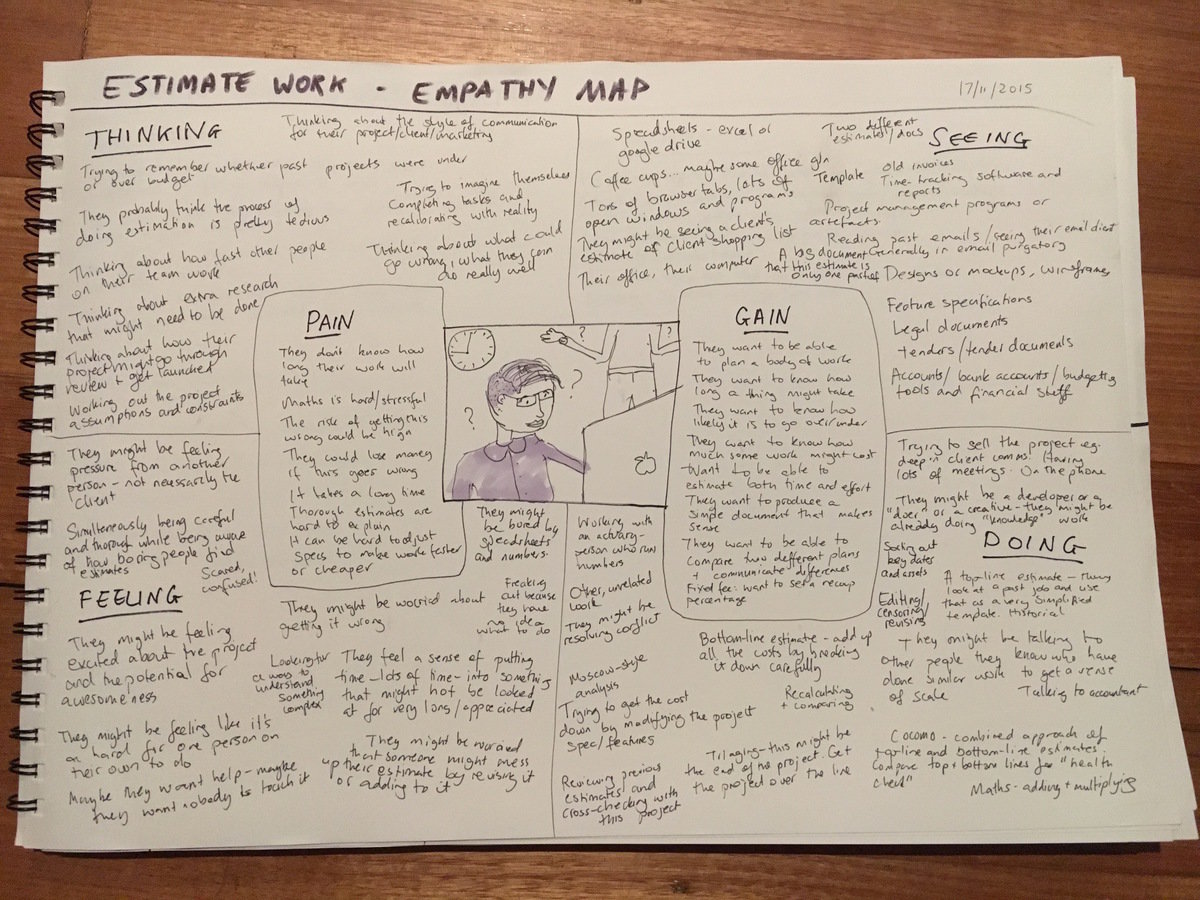 ESTIMATE WORK - EMPATHY MAP
17/11/2015
THINKING
Thinking about the style of communication
for their project/client/marketing
Trying to remember whether past projects were under
or over budget
Trying to imagine themselves
completing tasks and
recalibrating with reality
They probably think the process of
doing estimation is pretty tedious
Thinking about how fast other people
on their team work
Thinking about what could
go wrong, what they can
do really well
Thinking about extra research
that might need to be done
Thinking about how their
project might go through
review + get launched
Working out the project
assumptions and constraints
SEEING
Spreadsheets - excel or
google drive
Two different
estimates/docs
Coffee cups... maybe some office gin
Template
old invoices
Time-tracking software and
reports
Tons of browser tabs, lots of
open windows and programs
Project management programs or
artefacts
They might be seeing a client's
estimate of client shopping list
Reading past emails/seeing their email client
Generally in email purgatory
Their office, their computer
A big document
that this estimate is
only one part of
Designs or mockups, wireframes
Feature specifications
Legal documents
tenders/tender documents
Accounts/bank accounts/budgeting
tools and financial stuff
PAIN
They don't know how
long their work will
take
Maths is hard/stressful
The risk of getting this
wrong could be high
They could lose money
if this goes wrong
It takes a long time
Thorough estimates are
hard to explain
It can be hard to adjust
specs to make work faster
or cheaper
?
?
?
?
GAIN
They want to be able
to plan a body of work
They want to know how
long a thing might take
They want to know how
likely it is to go over/under
They want to know how
much some work might cost
Want to be able to
estimate both time and effort
They want to produce a
simple document that makes
sense
They want to be able to
compare two different plans
+ communicate differences
Fixed fee: want to set a recoup
percentage
FEELING
They might be feeling
pressure from another
person - not necessarily the
client
Simultaneously being careful
and thorough while being aware
of how boring people find
estimates
Scared,
confused!
They might be bored by
spreadsheets
and numbers.
They might be feeling
excited about the project
and the potential for
awesomeness
They might be worried about
getting it wrong
Freaking
out because
they have
no idea
what to do
Looking for
a way to
understand
something
complex
They feel a sense of putting
time - lots of time - into something
that might not be looked
at for very long/appreciated
They might be feeling like it's
hard for one person on
their own to do
Maybe they want help - maybe
they want nobody to touch it
They might be worried
that someone might mess
up their estimate by revising it
or adding to it
DOING
Trying to sell the project eg.
deep in client comms. Having
lots of meetings. On the phone
They might be a developer or a
"doer" or a creative - they might be
already doing "knowledge" work
Working with
an actuary-
person who runs
numbers
Other, unrelated
work
They might be
resolving conflict
Sorting out
key dates
and assets
Editing/
censoring/
revising
A top-line estimate -
look at a past job and use
that as a very simplified
template. Historical
Bottom-line estimate - add up
all the costs by breaking
it down carefully
They might be talking to
other people they know who have
done similar work to get a sense
of scale
Talking to accountant
Moscow-style
analysis
Recalculating
+ comparing
Trying to get the cost
down by modifying the project
spec/features
Cocomo - combined approach of
top-line and bottom-line estimates.
Compare top + bottom lines for "health
check"
Triaging - this might be
the end of the project. Get
the project over the line
Reviewing previous
estimates and
cross-checking with
this project
Maths - adding + multiplying